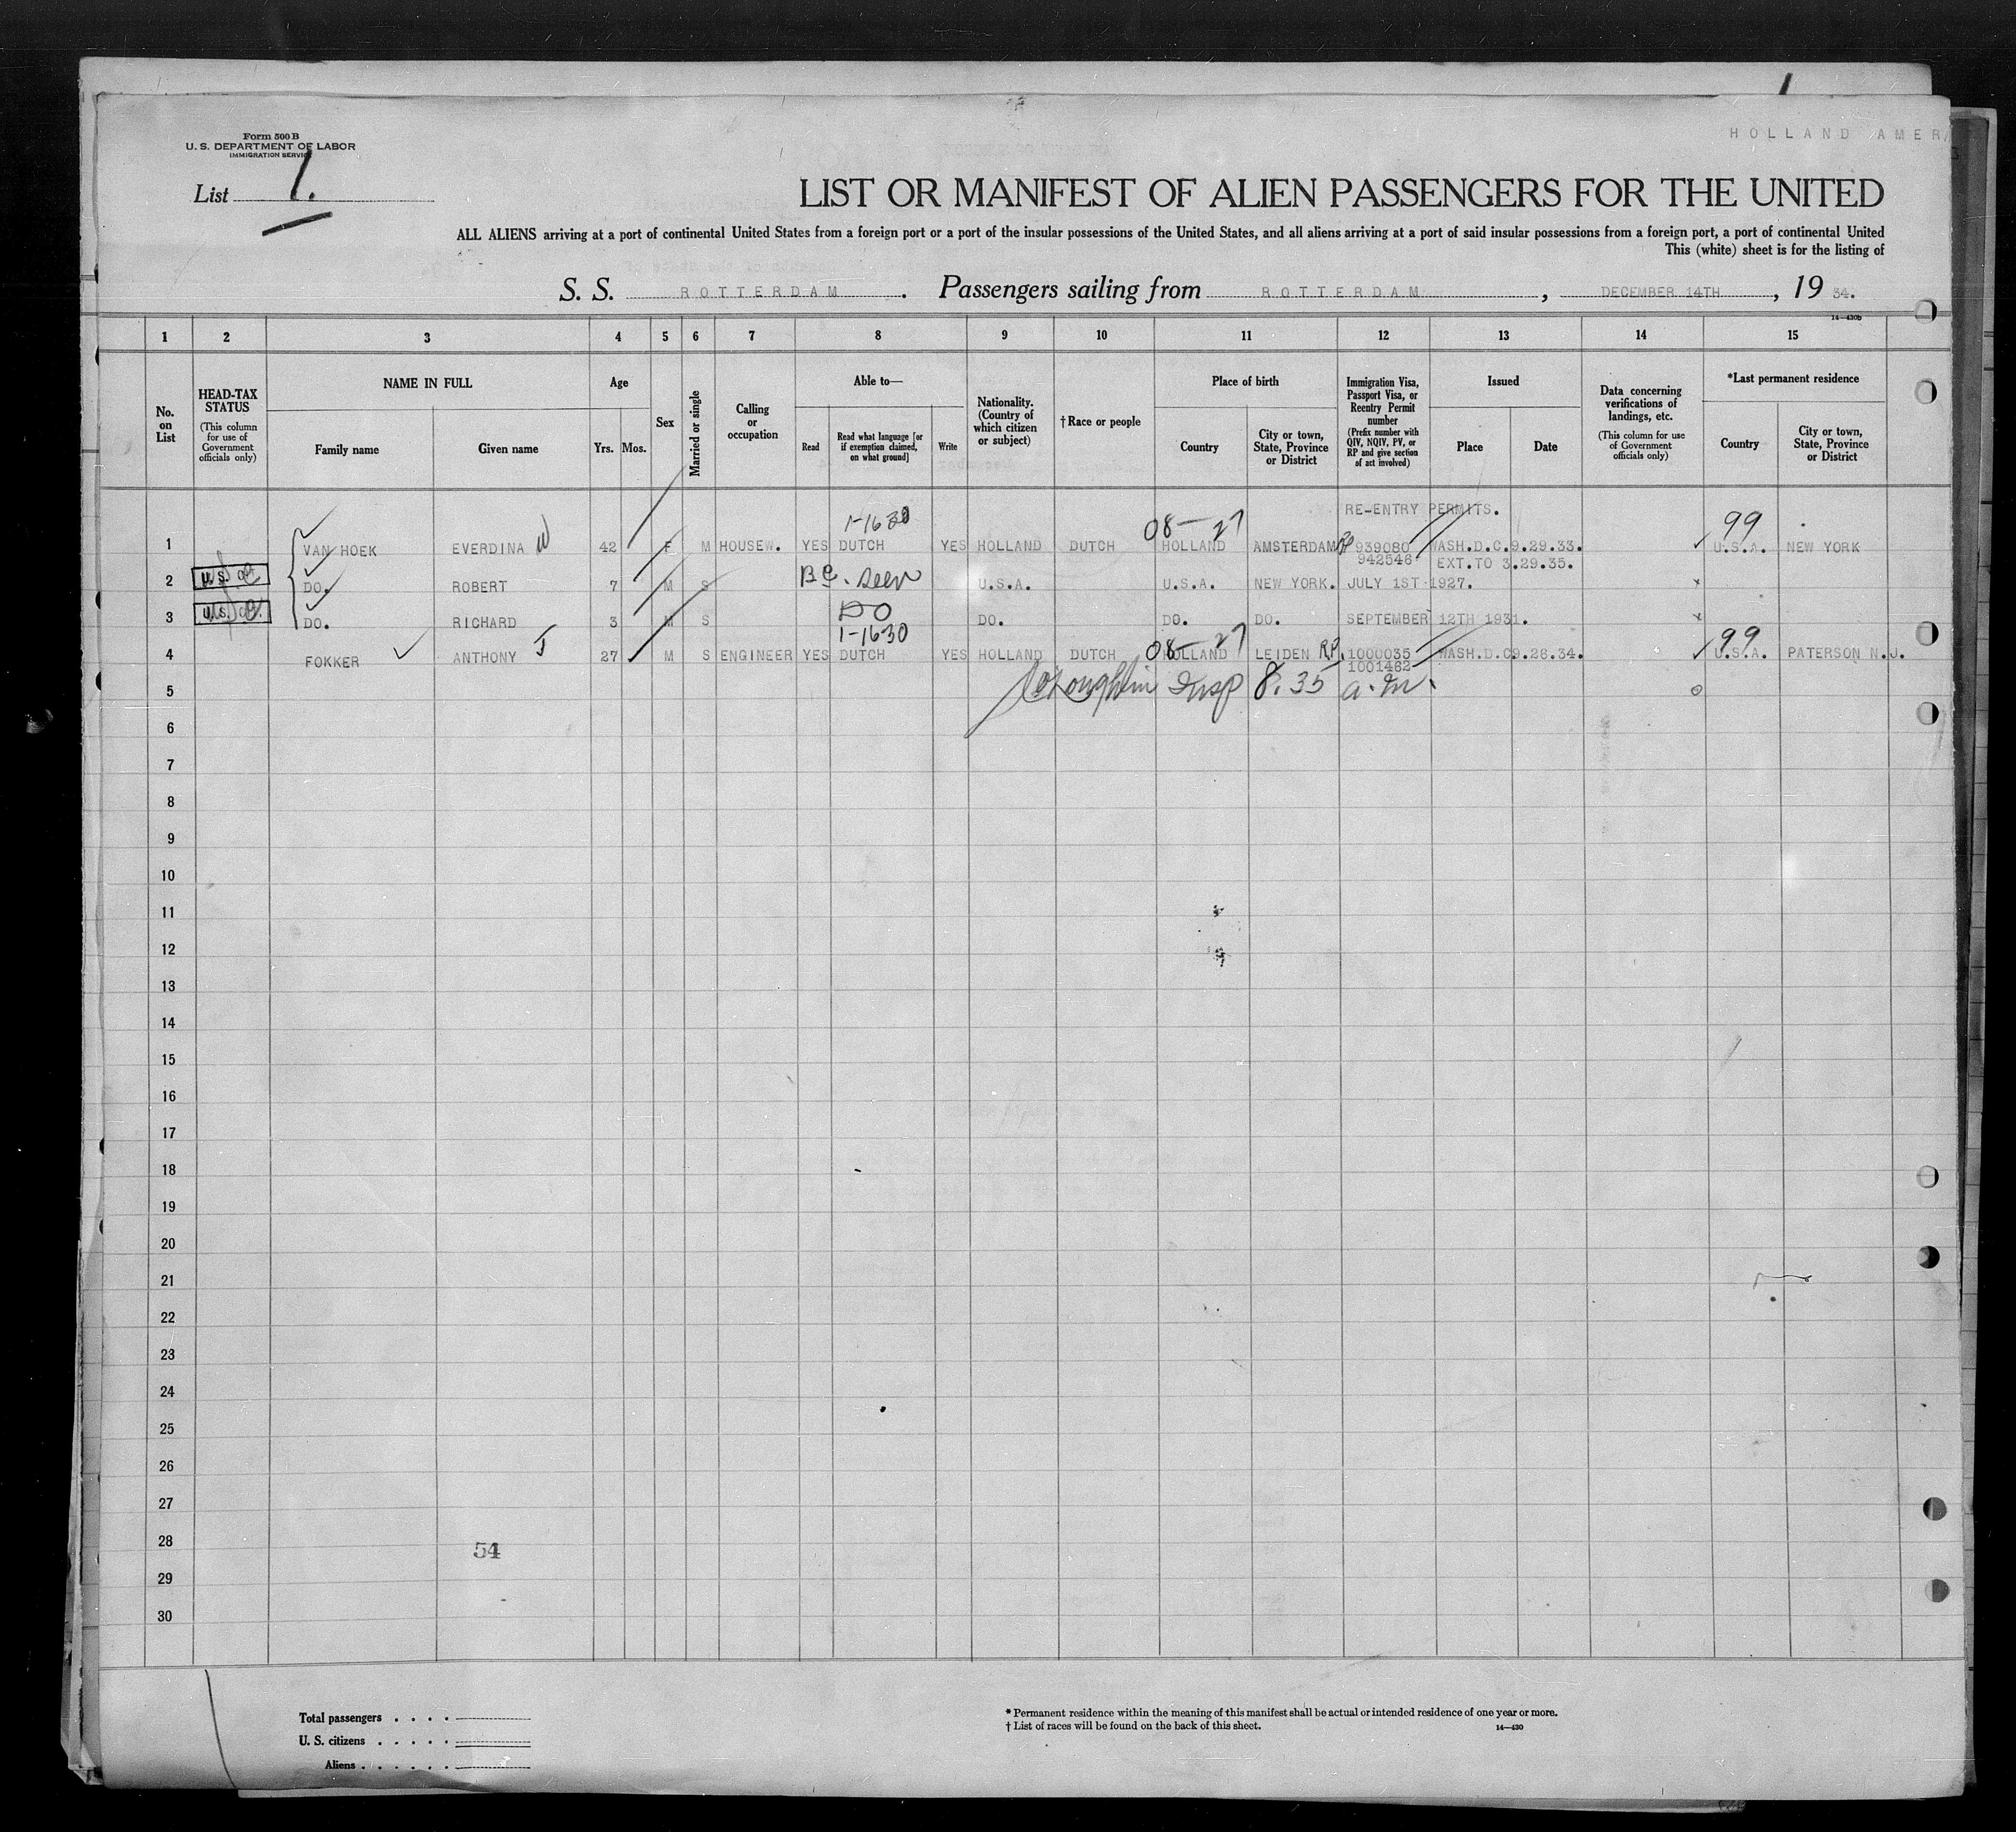 HOLLAND AMER
Form 500 B
U. S. DEPARTMENT OF LABOR
IMMIGRATION SERVICE
List 1.
LIST OR MANIFEST OF ALIEN PASSENGERS FOR THE UNITED
ALL ALIENS arriving at a port of continental United States from a foreign port or a port of the insular possessions of the United States, and all aliens arriving at a port of said insular possessions from a foreign port, a port of continental United
This (white) sheet is for the listing of
S. S. ROTTERDAM. Passengers sailing from ROTTERDAM, DECEMBER 14TH, 19 34.
14—430b
1 2 3 4 5 6 7 8 9 10 11 12 13 14 15
No. on List
HEAD-TAX STATUS
(This column for use of Government officials only)
NAME IN FULL
Family name Given name
Age
Yrs. Mos.
Sex
Married or single
Calling or occupation
Able to—
Read
Read what language [or if exemption claimed, on what ground]
Write
Nationality. (Country of which citizen or subject)
† Race or people
Place of birth
Country
City or town, State, Province or District
Immigration Visa, Passport Visa, or Reentry Permit number
(Prefix number with QIV, NQIV, PV, or RP and give section of act involved)
Issued
Place Date
Data concerning verifications of landings, etc.
(This column for use of Government officials only)
*Last permanent residence
Country
City or town, State, Province or District
RE-ENTRY PERMITS.
1-1630 08-27 99
1 VAN HOEK EVERDINA W 42 F M HOUSEW. YES DUTCH YES HOLLAND DUTCH HOLLAND AMSTERDAM RP 939080 WASH.D.C.9.29.33. U.S.A. NEW YORK
942546 EXT.TO 3.29.35.
2 U.S. DO. ROBERT 7 M S B.C. seen U.S.A. U.S.A. NEW YORK. JULY 1ST 1927.
3 U.S. DO. RICHARD 3 M S DO DO. DO. DO. SEPTEMBER 12TH 1931.
1-1630 08-27 99
4 FOKKER ANTHONY J 27 M S ENGINEER YES DUTCH YES HOLLAND DUTCH HOLLAND LEIDEN R.P. 1000035 WASH.D.C.9.26.34. U.S.A. PATERSON N.J.
1001482
5 Insp 8.35 a.m.
6
7
8
9
10
11
12
13
14
15
16
17
18
19
20
21
22
23
24
25
26
27
28 54
29
30
Total passengers . . . .
U. S. citizens . . . . .
Aliens . . . . . .
* Permanent residence within the meaning of this manifest shall be actual or intended residence of one year or more.
† List of races will be found on the back of this sheet. 14—430